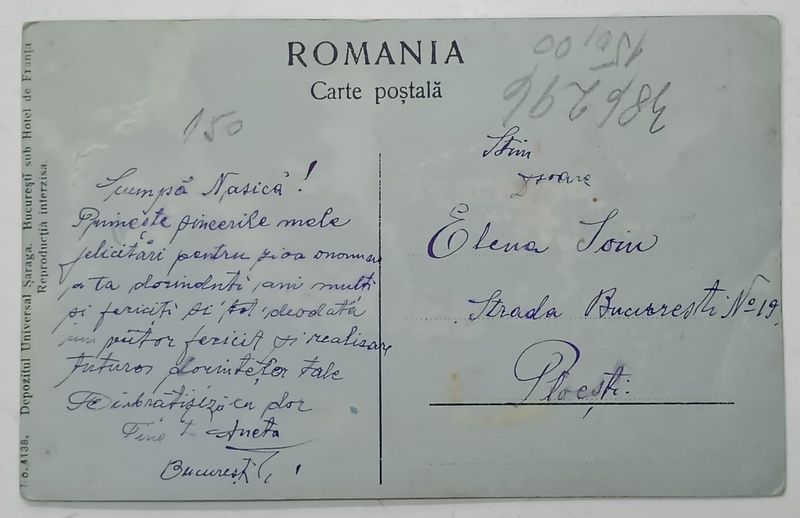 ROMANIA
Carte poștală
15,00
386296
150
Scumpă Nasică!
Primește sincerile mele
felicitări pentru zioa onomas
a ta dorinduti ani multi
și fericiți si tot deodată
un viitor fericit și realisare
tuturor dorintelor tale
Te îmbrățișiză cu dor
Fina t. Aneta
București
Stim
Elena Soiu
Strada Bucuresti No 19
Ploești.
No. 4138. Depozitul Universal Șaraga. București sub Hotel de Franța
Reproducția interzisa.